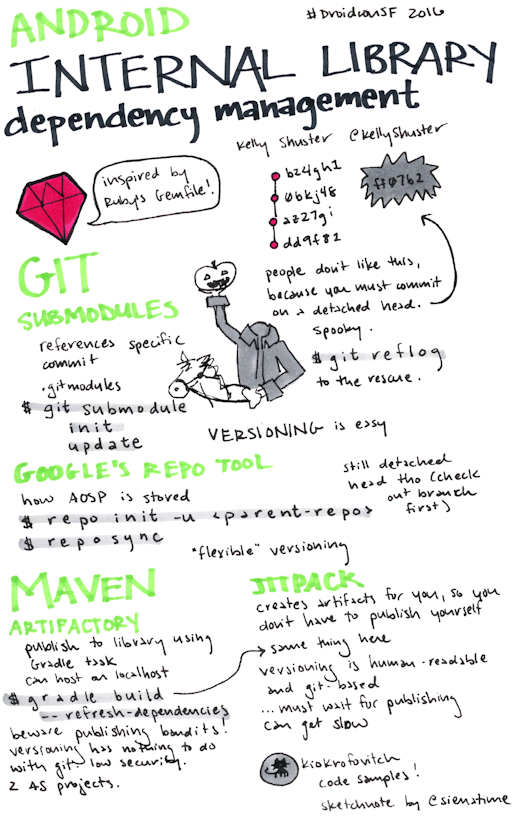 ANDROID
#DroidconSF 2016
INTERNAL LIBRARY
dependency management
Kelly Shuster @kellyshuster
inspired by
Ruby's Gemfile!
bz4gh1
0bkj48
az27gi
dd9f82
ff07b2
people don't like this,
because you must commit
on a detached head.
spooky.
$ git reflog
to the rescue.
GIT
SUBMODULES
references specific
commit
.gitmodules
$ git submodule
init
update
VERSIONING is easy
GOOGLE'S REPO TOOL
how AOSP is stored
$ repo init -u <parent-repo>
$ repo sync
still detached
head tho (check
out branch
first)
"flexible" versioning
MAVEN
ARTIFACTORY
publish to library using
Gradle task
can host on localhost
$ gradle build
-- refresh-dependencies
beware publishing bandits!
versioning has nothing to do
with git. low security.
2 AS projects.
JITPACK
creates artifacts for you, so you
don't have to publish yourself
same thing here
versioning is human-readable
and git-based
... must wait for publishing
can get slow
kiokrofovitch
code samples!
sketchnote by @sienatime